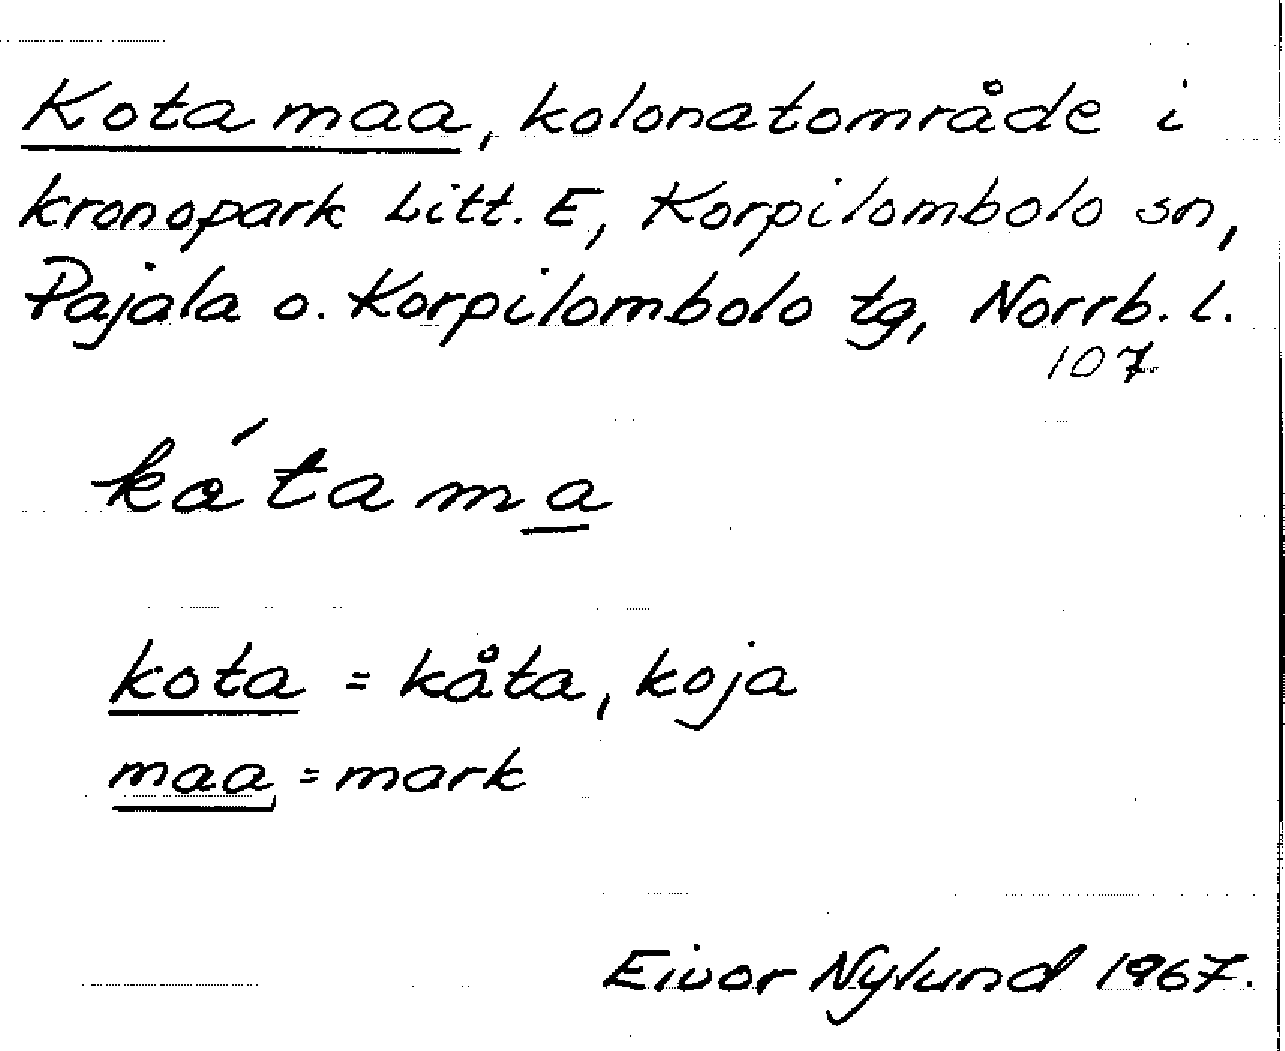 Kotamaa, kolonatområde i
kronopark Litt. E, Korpilombolo sn,
Pajala o. Korpilombolo tg, Norrb. l.
107
kótama
kota = kåta, koja
maa = mark
Eivor Nylund 1967.